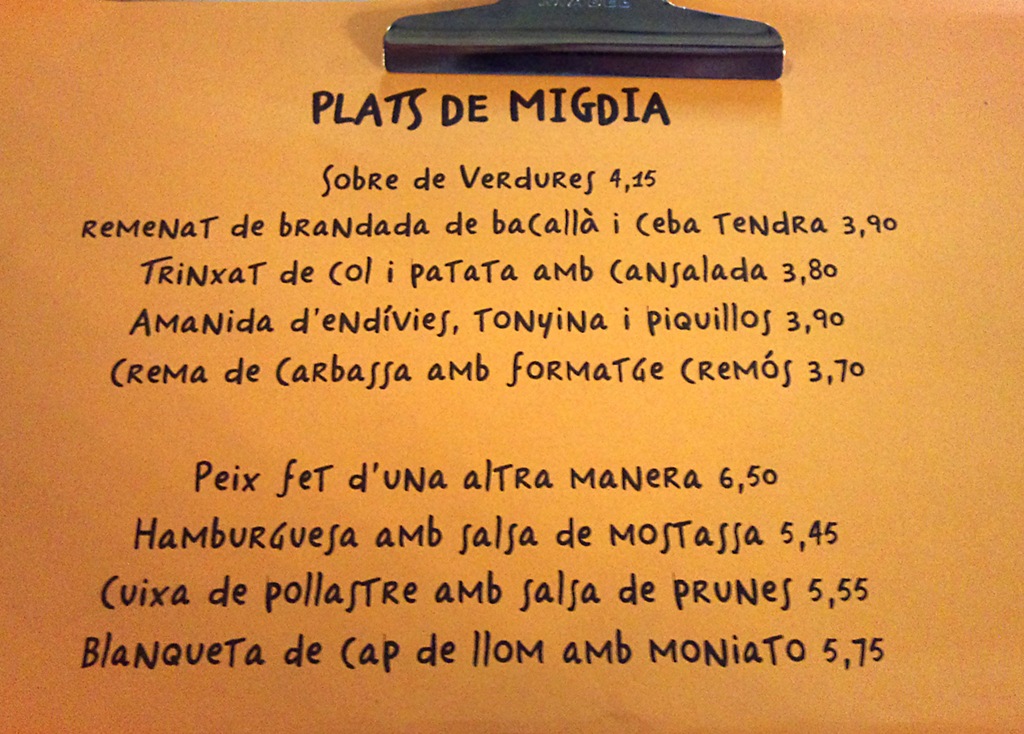 PLATS DE MIGDIA
Sobre de Verdures 4,15
Remenat de brandada de bacallà i ceba tendra 3,90
Trinxat de col i patata amb cansalada 3,80
Amanida d'endívies, tonyina i piquillos 3,90
Crema de carbassa amb formatge cremós 3,70
Peix fet d'una altra manera 6,50
Hamburguesa amb salsa de mostassa 5,45
Cuixa de pollastre amb salsa de prunes 5,55
Blanqueta de cap de llom amb moniato 5,75